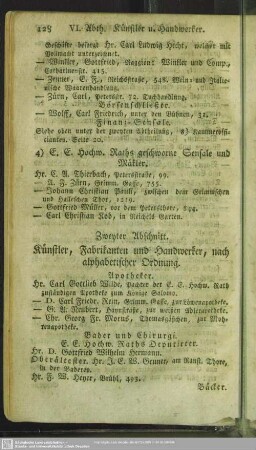 128 VI. Abth. Künstler u. Handwerker.
Geschäfte besorgt Hr. Carl Ludwig Hecht, welcher mit
Vollmacht unterzeichnet.
— Winkler, Gottfried, Magazin: Winkler und Comp.,
Catharinenstr. 413.
— Zeyner, E. F., Reichsstraße, 548. Wein- und Italie-
nische Waarenhandlung.
— Zürn, Carl, Petersstr. 72. Tuchhandlung.
Börsenschließer.
— Wolff, Carl Friedrich, unter den Bühnen, 31.
Finanz-Sensale.
Siehe oben unter der zweyten Abtheilung, Commerzdeputa-
tion. Seite 20.
4) E. E. Hochw. Raths geschworne Sensale und
Mäkler.
Hr. C. A. Thierbach, Petersstraße, 99.
— A. F. Zürn, Grimm. Gasse, 755.
— Johann Christian zwischen dem Grimmischen
und Halleschen Thor, 1229.
— Gottfried Müller, vor dem Petersthore, 844.
— Carl Christian Rod, in Reichels Garten.
Zweyter Abschnitt.
Künstler, Fabrikanten und Handwerker, nach
alphabetischer Ordnung.
Apotheker.
Hr. Carl Gottlieb Wilde, Pachter der E. E. Hochw. Rath
zuständigen Apotheke zum König Salomo.
— D. Carl Friedr. Rein, Grimm. Gasse, zur Löwenapotheke.
— G. A. Neubert, Haynstraße, zur weißen Adlerapotheke.
— Chr. Georg Fr. Morus, Thomasgäßchen, zur Moh-
renapotheke.
Bader und Chirurgi.
E. E. Hochw. Raths Deputirter.
Hr. D. Gottfried Wilhelm Hermann.
Oberältester: Hr. J. E. W. Gruner, am Ranst. Thore,
in der Baderey.
Hr. F. W. Heyer, Brühl, 492.
Bäcker.